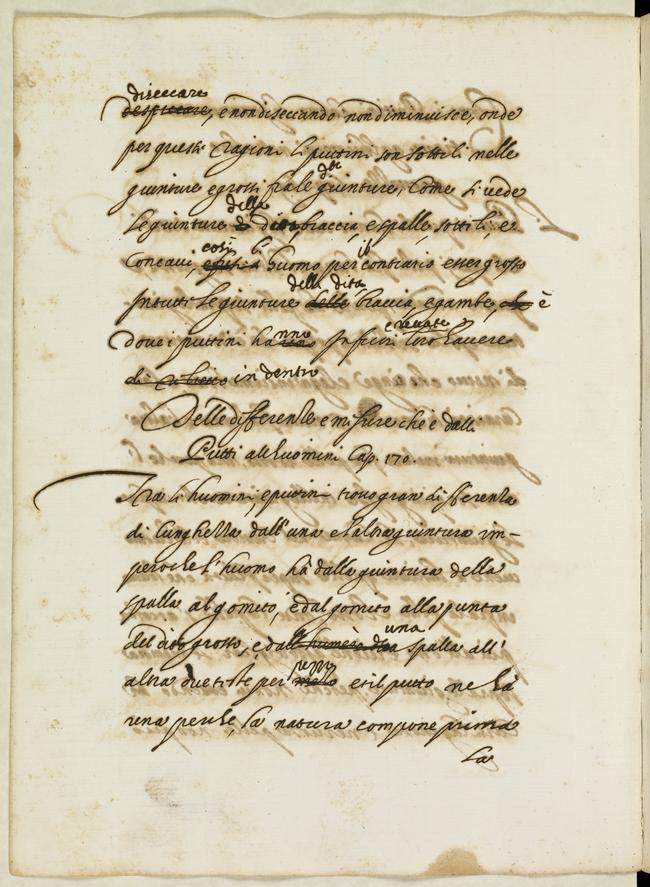 diseccare
despiccare, e non diseccando non diminuisce, onde
per queste ragioni li puttini son sottili nelle
giunture e grossi fra le dte giunture, Come si vede
le giunture della dita, braccia, e spalle, sottili, e
Concavi, così l' huomo per il contrario esser grosso
In tutte le giunture delle della dita braccia, e gambe, che è
dove i puttini hanno In fuori loro havere rilevate
di rilievo in dentro
Delle differentie e misure che è dalli
Putti all'huomini Cap. 170.
Tra li huomini, e puttini trovo gran differenza
di lunghezza dall'una e l'altra giuntura im-
peroche l'huomo hà dalla giuntura della
spalla al gomito, e dal gomito alla punta
del dito grosso, e dall' humero della una spalla all'
altra due teste per pezzo et il putto ne hà
una perche la natura compone prima
la